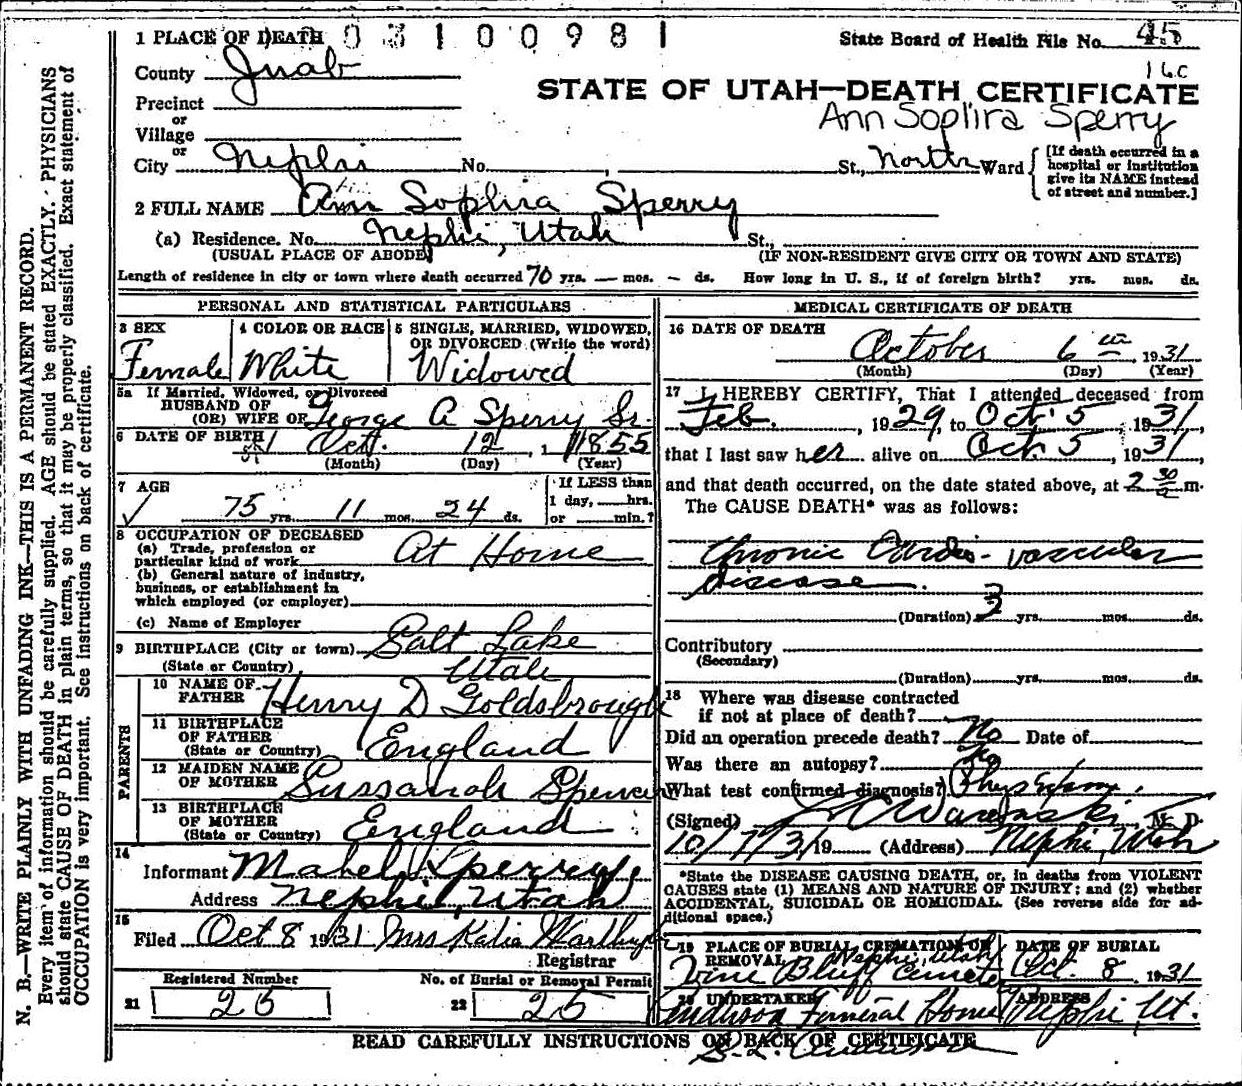 1 PLACE OF DEATH 03100981
State Board of Health File No. 45
County Juab
16C
STATE OF UTAH—DEATH CERTIFICATE
Precinct
or
Village
Ann Soplira Sperry
or
City Nephi No. , St., North Ward
[If death occurred in a
hospital or institution
give its NAME instead
of street and number.]
2 FULL NAME Ann Sophira Sperry
(a) Residence. No. Nephi, Utah St.,
(USUAL PLACE OF ABODE)
(IF NON-RESIDENT GIVE CITY OR TOWN AND STATE)
Length of residence in city or town where death occurred 70 yrs. — mos. - ds. How long in U. S., if of foreign birth? yrs. mos. ds.
PERSONAL AND STATISTICAL PARTICULARS
3 SEX
Female
4 COLOR OR RACE
White
5 SINGLE, MARRIED, WIDOWED,
OR DIVORCED (Write the word)
Widowed
5a If Married, Widowed, or Divorced
HUSBAND OF
(OR) WIFE OF George A Sperry Sr.
6 DATE OF BIRTH Oct. 12, 1 1855
(Month) (Day) (Year)
7 AGE
75 yrs. 11 mos. 24 ds.
If LESS than
1 day, hrs.
or min.?
8 OCCUPATION OF DECEASED
(a) Trade, profession or
particular kind of work At Home
(b) General nature of industry,
business, or establishment in
which employed (or employer)
(c) Name of Employer
9 BIRTHPLACE (City or town) Salt Lake
(State or Country) Utah
PARENTS
10 NAME OF
FATHER Henry D Goldsbrough
11 BIRTHPLACE
OF FATHER
(State or Country) England
12 MAIDEN NAME
OF MOTHER Sussanah Spencer
13 BIRTHPLACE
OF MOTHER
(State or Country) England
14
Informant Mabel Sperry
Address Nephi, Utah
15
Filed Oct 8 1931 Mrs
Registrar
Registered Number
21 25
No. of Burial or Removal Permit
22 25
MEDICAL CERTIFICATE OF DEATH
16 DATE OF DEATH
October 6th, 1931
(Month) (Day) (Year)
17 I HEREBY CERTIFY, That I attended deceased from
Feb. , 1929, to Oct. 5, 1931,
that I last saw her alive on Oct. 5, 1931,
and that death occurred, on the date stated above, at 2 30 m.
The CAUSE DEATH* was as follows:
Chronic Cardio-vascular
disease.
(Duration) yrs. mos. ds.
Contributory
(Secondary)
(Duration) yrs. mos. ds.
18 Where was disease contracted
if not at place of death?
Did an operation precede death? No Date of
Was there an autopsy? No
What test confirmed diagnosis? Phys
(Signed) M. D.
10/7/31 19 (Address) Nephi, Utah
*State the DISEASE CAUSING DEATH, or, in deaths from VIOLENT
CAUSES state (1) MEANS AND NATURE OF INJURY; and (2) whether
ACCIDENTAL, SUICIDAL OR HOMICIDAL. (See reverse side for ad-
ditional space.)
19 PLACE OF BURIAL, CREMATION OR
REMOVAL Nephi, Utah
Vine Bluff Cemetery
DATE OF BURIAL
Oct. 8, 1931
20 UNDERTAKER
Anderson Funeral Home
ADDRESS
Nephi, Ut.
READ CAREFULLY INSTRUCTIONS ON BACK OF CERTIFICATE
N. B.—WRITE PLAINLY WITH UNFADING INK—THIS IS A PERMANENT RECORD.
Every item of information should be carefully supplied. AGE should be stated EXACTLY. PHYSICIANS
should state CAUSE OF DEATH in plain terms, so that it may be properly classified. Exact statement of
OCCUPATION is very important. See instructions on back of certificate.